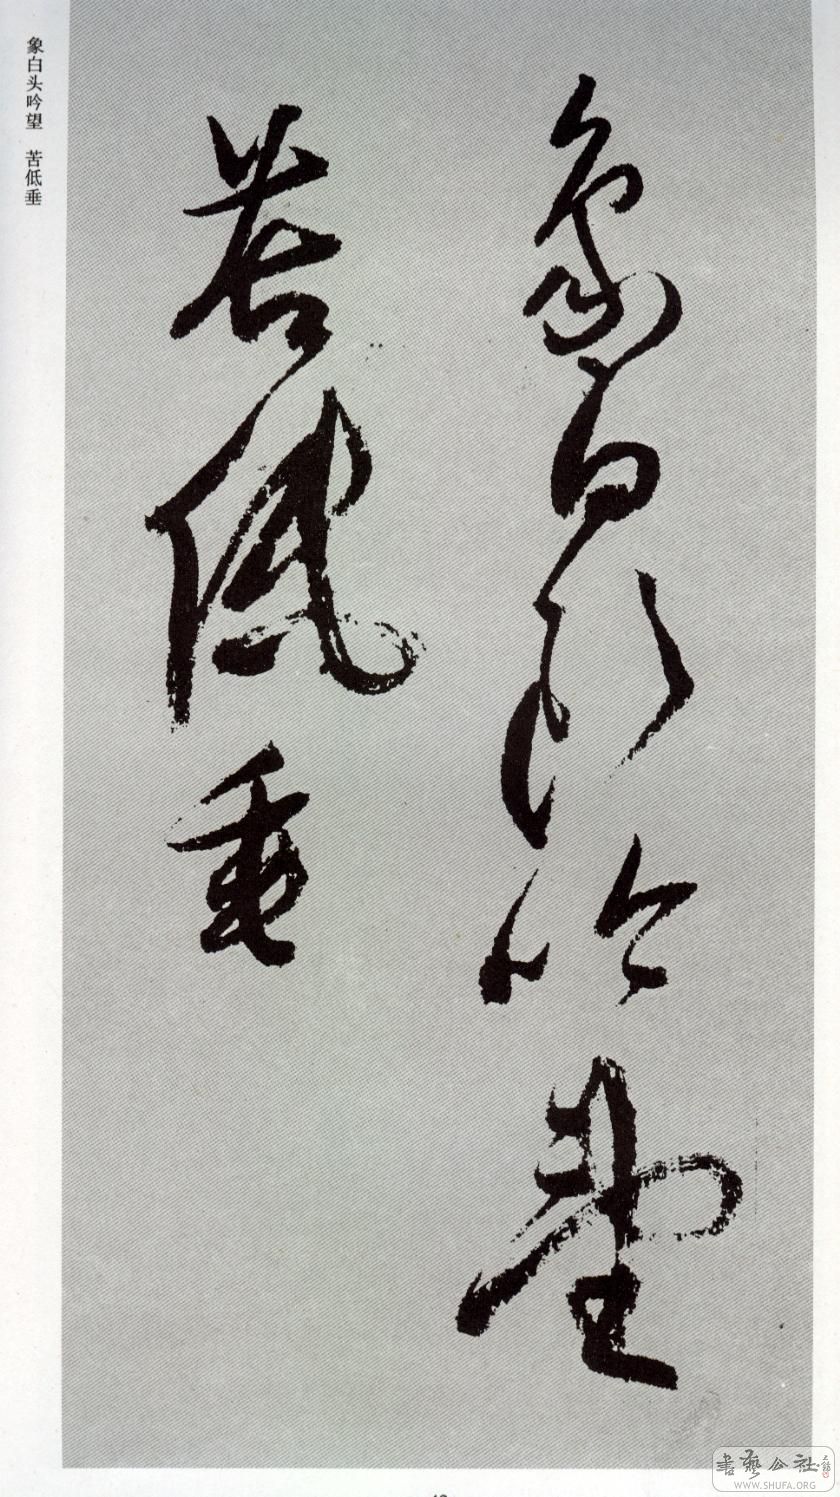 象白头吟望
苦低垂
象白头吟望 苦低垂
书艺公社
WWW.SHUFA.ORG